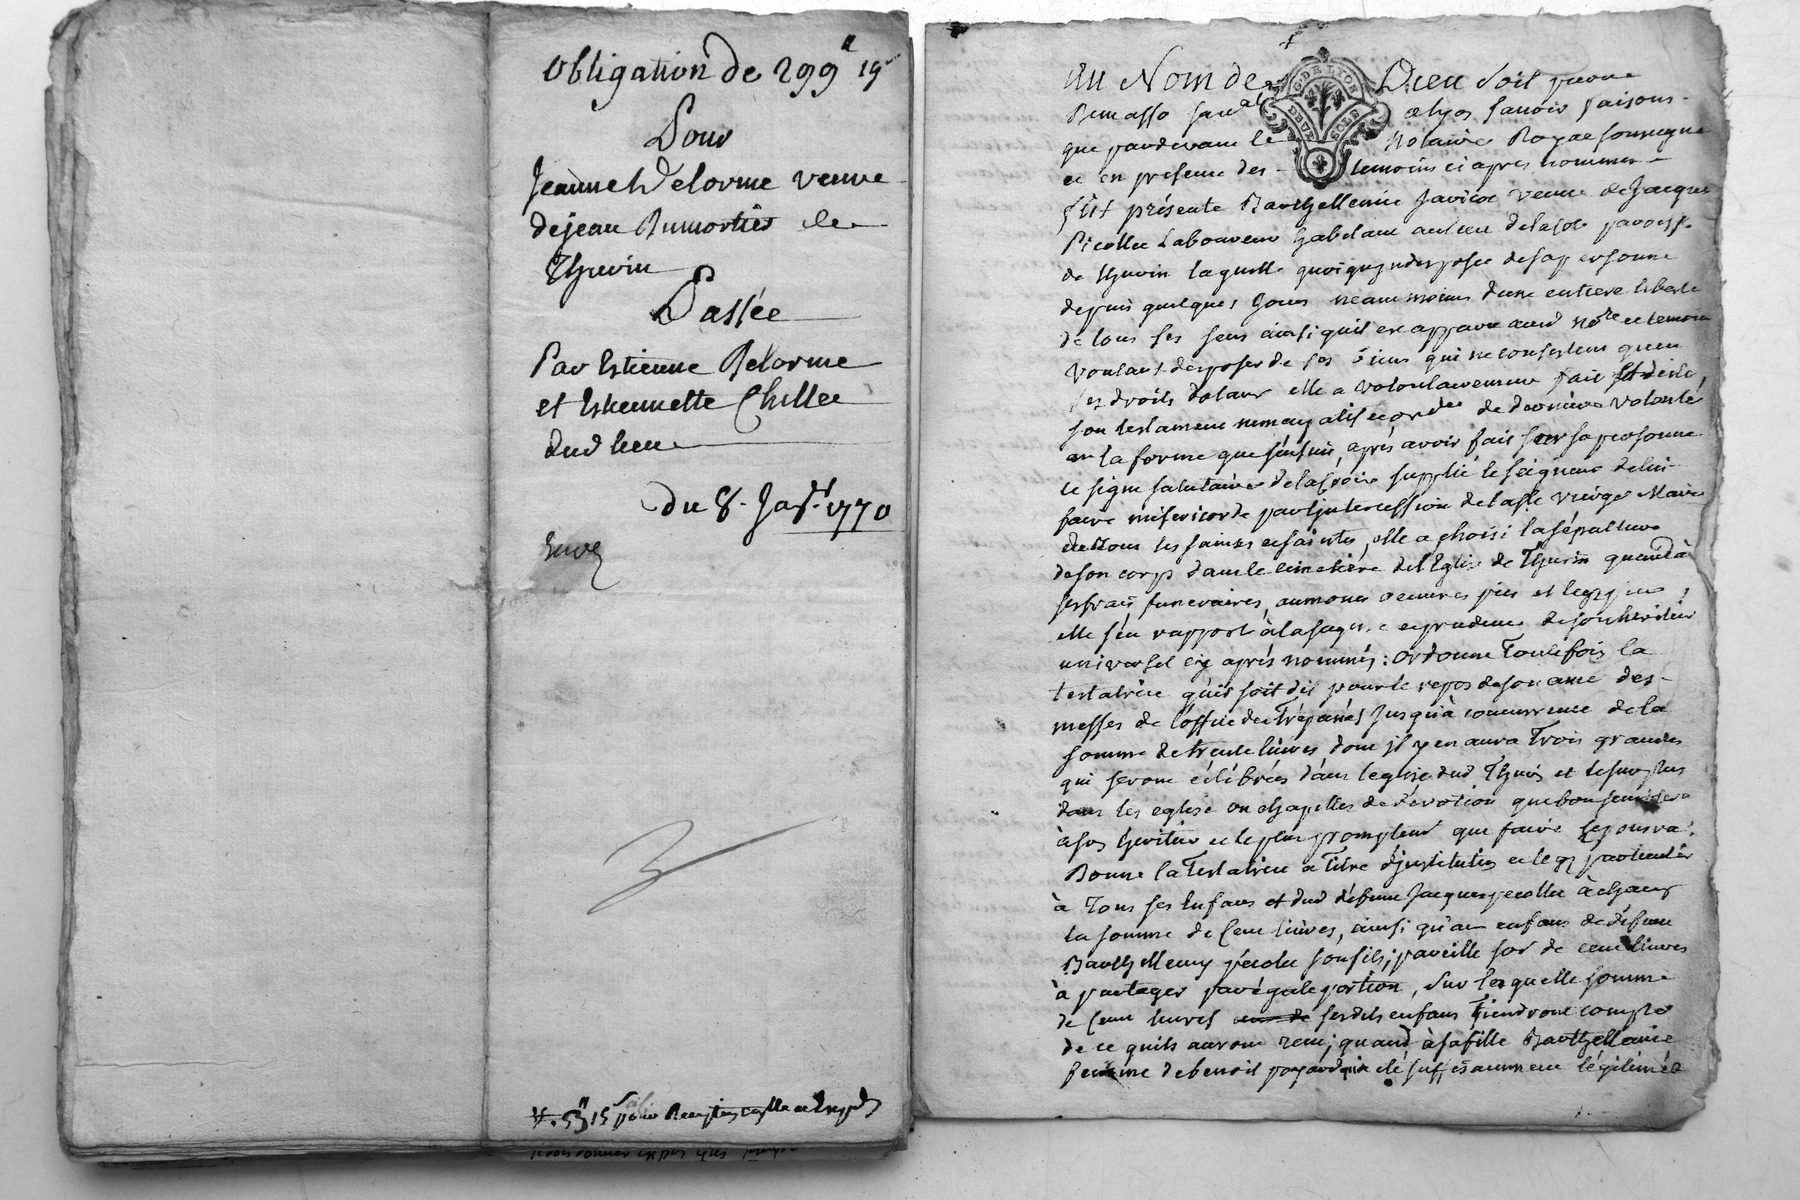 Obligation de 299ᵗᵗ 19ˢ
Pour
Jeanne Delorme veuve
de jean Dumortier de
Thurin
Passée
Par Estienne Delorme
et Estiennette Chillee
dud lieu
du 8. Ja.ʳ 1770
pour
Au Nom de Dieu Soit
savoir faisons
que pardevant le Notaire Royal soussigné
et en presence des temoins ci apres nommes
fût présente Barthellemie veuve de Jacques
Picollet Laboureur habitant au lieu de parroisse
de thurin laquelle quoique indisposée de sa personne
depuis quelques jours neanmoins dune entiere liberté
de tous ses sens ainsi quil est apparu aud noʳᵉ et temoins
voulant disposer de ses biens qui ne consistent quen
ses droits dotaux elle a volontairement fait
son testament nuncupatif et ordᶜᵉ de derniere volonté
en la forme que sensuit, aprés avoir fait sur sa personne
le signe salutaire de la croix supplié le seigneur de lui
faire misericorde par l'intercession de la sᵗᵉ vierge Marie
de tous les saints et saintes, elle a choisi la sépulture
de son corps dans le cimetiére de l'Eglise de Thurin quand à
ses frais funeraires, aumones oeuvres pies et legs pieux,
elle s'en rapporte à la sagesse et prudence de son heritier
universel cy aprés nommé: ordonne toutefois la
testatrice qu'il soit dit pour le repos de son ame des
messes de l'office des Trépassés jusqu'à concurrence de la
somme de trente livres dont il y en aura Trois grandes
qui seront célébrées dans l'eglise dud Thurin et le surplus
dans les eglise ou chapelles de dévotion que bon semblera
à son heritier et le plus promptemᵗ que faire se pourra.
Donne la Testatrice a Titre d'institution et legs particulier
à Tous ses Enfans et dud défunt Jacques picollet à chacun
la somme de Cent livres, ainsi qu'aux enfans de défunt
Barthellemy picollet son fils; pareille soᵉ de cent livres
à partager par égale portion, sur lesquelle somme
de Cent livres sesdits enfans Tiendront compte
de ce quils auront recu; quand à sa fille Barthellemie
femme de benoit suffisamment légitimée